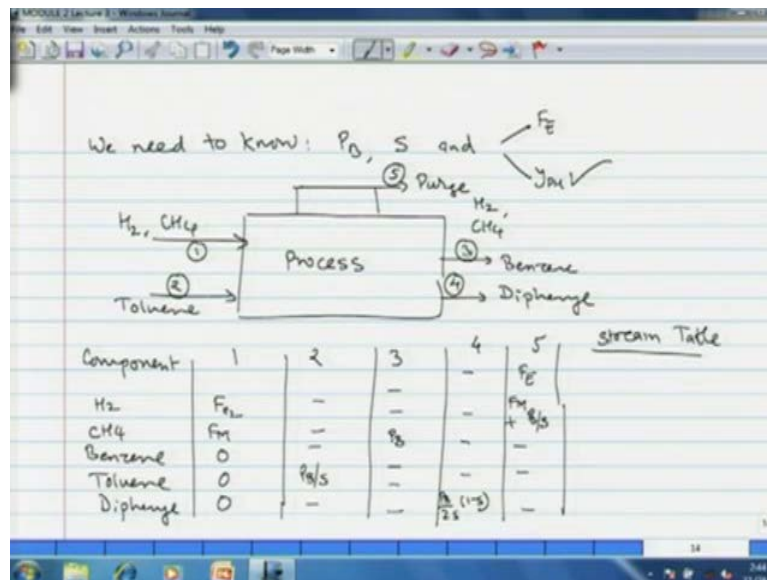 MODULE 2 Lecture 3 - Windows Journal
File Edit View Insert Actions Tools Help
Page Width
We need to know: P_B, S and F_E
y_PH ✓
⑤ Purge
H2, CH4
H2, CH4
①
Process
③ Benzene
②
Toluene
④ Diphenyl
Stream Table
Component 1 2 3 4 5
H2 F_H2 - - - F_E
CH4 F_M - - - F_M + P_B/S
Benzene 0 - P_B - -
Toluene 0 P_B/S - - -
Diphenyl 0 - - P_B/2S (1-S) -
14